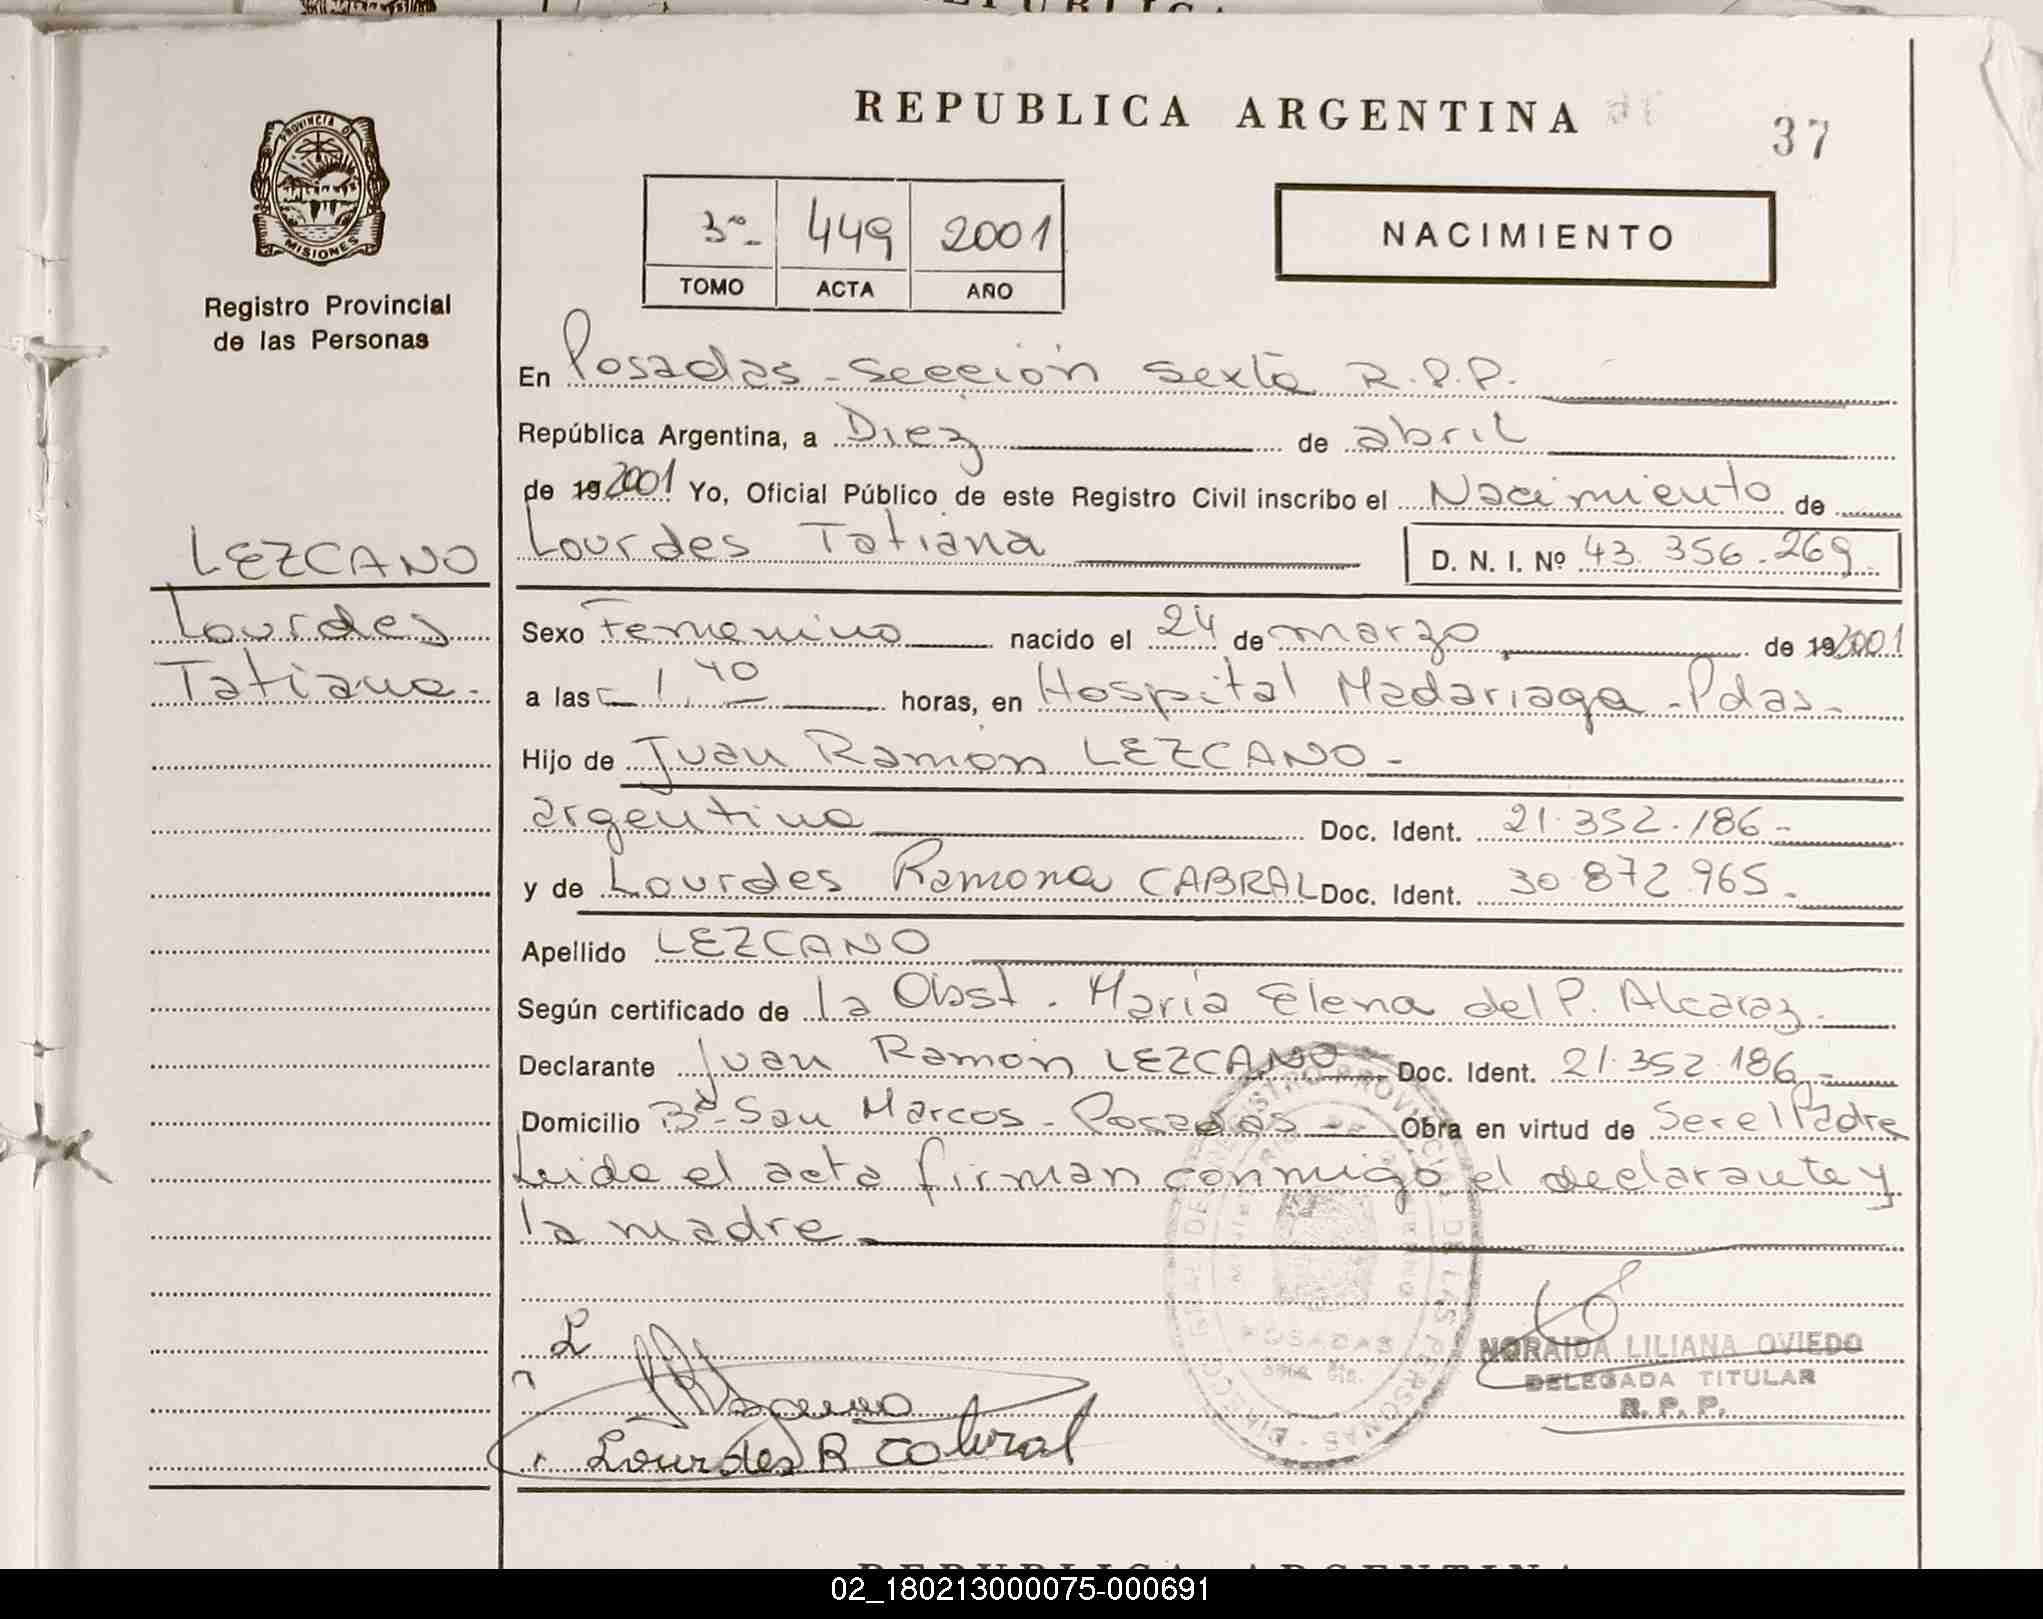 REPUBLICA ARGENTINA
37
PROVINCIA DE
MISIONES
Registro Provincial
de las Personas
3ro 449 2001
TOMO ACTA AÑO
NACIMIENTO
En Posadas - Sección Sexta R.P.P.
República Argentina, a Diez de abril
de 19 2001 Yo, Oficial Público de este Registro Civil inscribo el Nacimiento de
Lourdes Tatiana D. N. I. Nº 43.356.269
LEZCANO
Lourdes
Tatiana.-
Sexo Femenino nacido el 24 de marzo de 19 2001
a las 1,40 horas, en Hospital Madariaga - Pdas -
Hijo de Juan Ramón LEZCANO -
argentino Doc. Ident. 21.352.186 -
y de Lourdes Ramona CABRAL Doc. Ident. 30.872.965 -
Apellido LEZCANO
Según certificado de la Obst. María Elena del P. Alcaraz -
Declarante Juan Ramón LEZCANO Doc. Ident. 21.352.186 -
Domicilio Bº San Marcos - Posadas - Obra en virtud de Ser el Padre
Leida el acta firman conmigo el declarante y
la madre.
POSADAS
NORAIDA LILIANA OVIEDO
DELEGADA TITULAR
R. P. P.
Lourdes R Cabral
REPUBLICA ARGENTINA
02_180213000075-000691